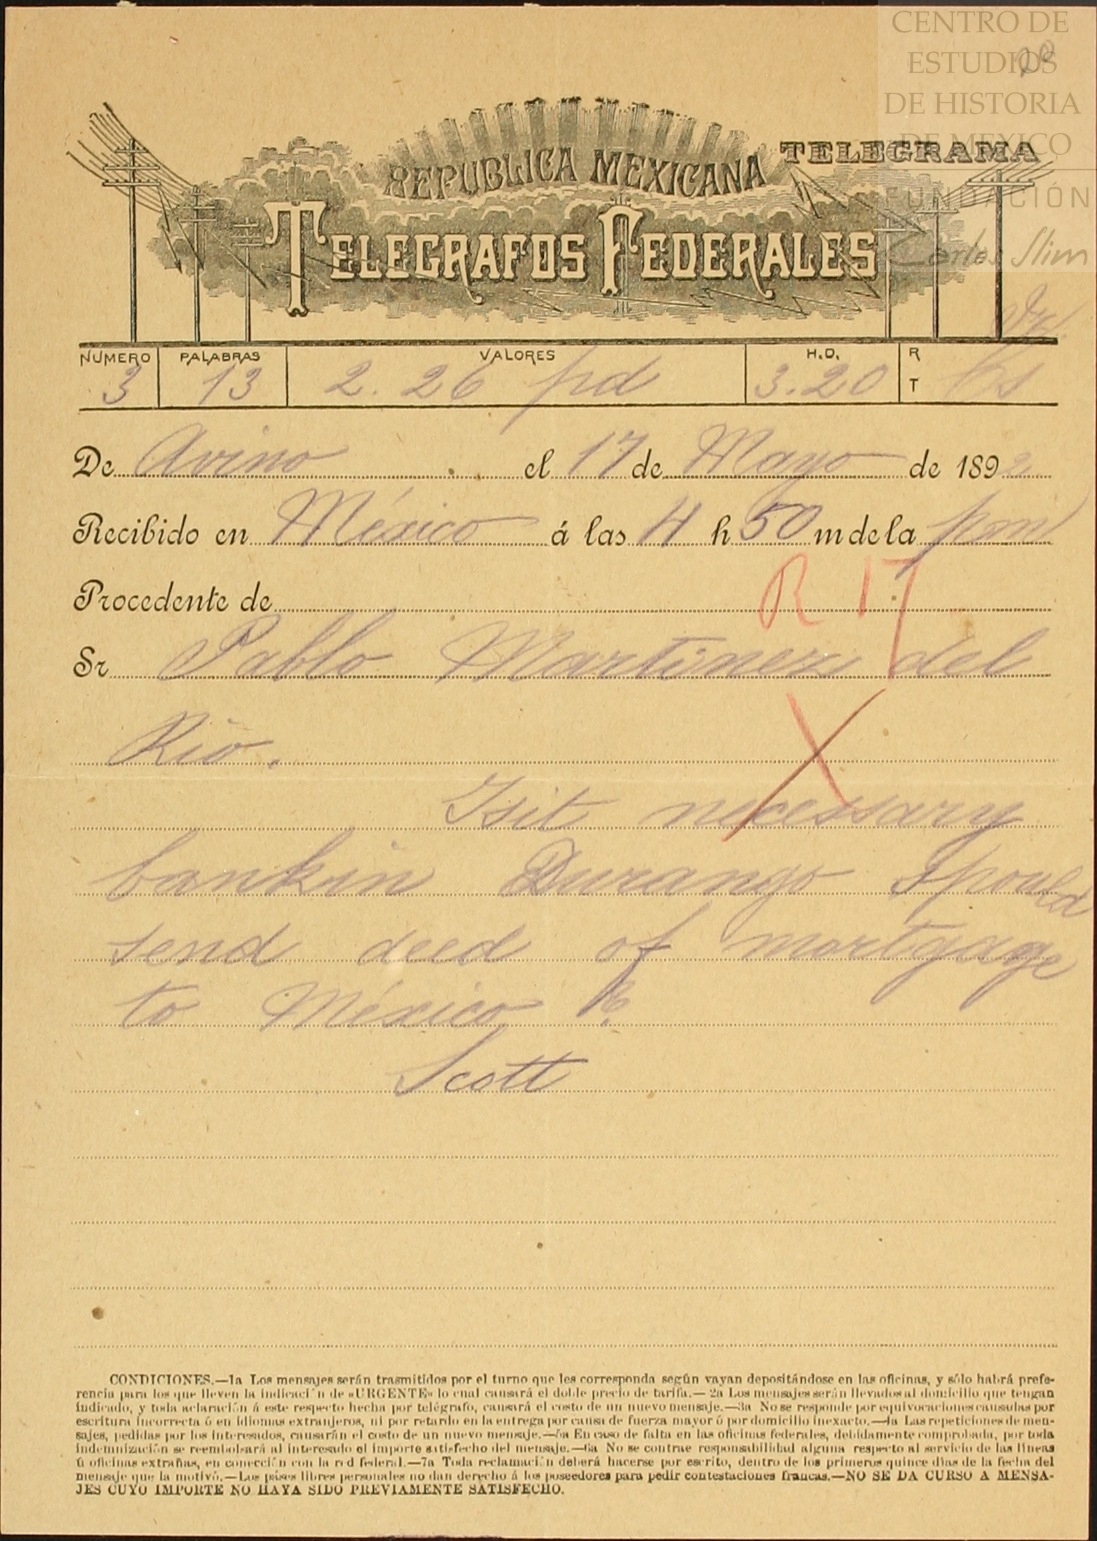 CENTRO DE
ESTUDIOS
DE HISTORIA
DE MEXICO
FUNDACIÓN
Carlos Slim
20
REPUBLICA MEXICANA
TELEGRAMA
TELEGRAFOS FEDERALES
NUMERO PALABRAS VALORES H.D. R T
3 13 2.26 pd 3.20
De Avino el 17 de Mayo de 1892
Recibido en México á las 4 h 50 m de la pm
Procedente de
R 17
Sr Pablo Martinez del
Rio.
X
Isit necessary
bankin Durango Ipould
send deed of mortgage
to México
Scott
CONDICIONES.—1a Los mensajes serán trasmitidos por el turno que les corresponda según vayan depositándose en las oficinas, y sólo habrá prefe-
rencia para los que lleven la indicaci n de «URGENTE» lo cual causará el doble precio de tarifa.—2a Los mensajes serán llevados al domicilio que tengan
indicado, y toda aclaración á este respecto hecha por telégrafo, causará el costo de un nuevo mensaje.—3a No se responde por equivocaciones causadas por
escritura incorrecta ó en idiomas extranjeros, ni por retardo en la entrega por causa de fuerza mayor ó por domicilio inexacto.—4a Las repeticiones de men-
sajes, pedidas por los interesados, causarán el costo de un nuevo mensaje.—5a En caso de falta en las oficinas federales, debidamente comprobada, por toda
indemnización se reembolsará al interesado el importe satisfecho del mensaje.—6a No se contrae responsabilidad alguna respecto al servicio de las líneas
ú oficinas extrañas, en conección con la red federal.—7a Toda reclamación deberá hacerse por escrito, dentro de los primeros quince dias de la fecha del
mensaje que la motivó.—Los pases libres personales no dan derecho á los poseedores para pedir contestaciones francas.—NO SE DA CURSO A MENSA-
JES CUYO IMPORTE NO HAYA SIDO PREVIAMENTE SATISFECHO.